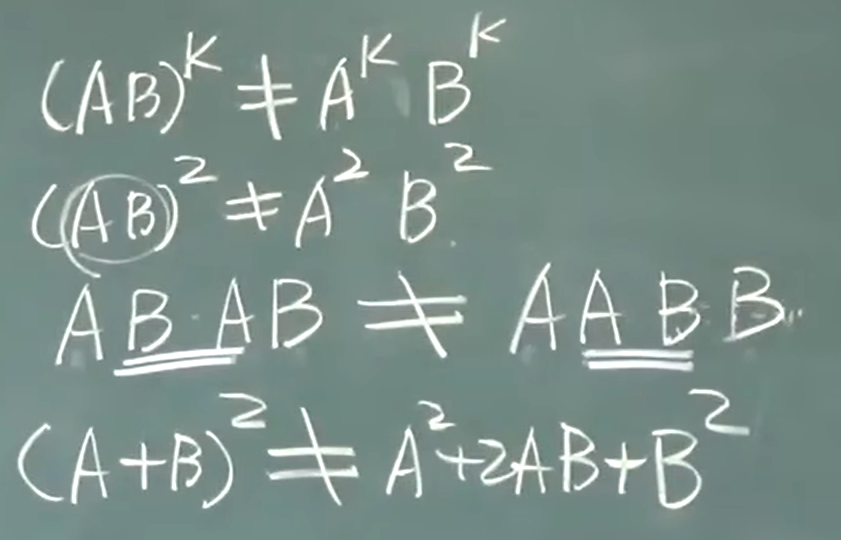 (AB)^K ≠ A^K B^K
(AB)² ≠ A² B²
AB·AB ≠ AABB
(A+B)² ≠ A²+2AB+B²